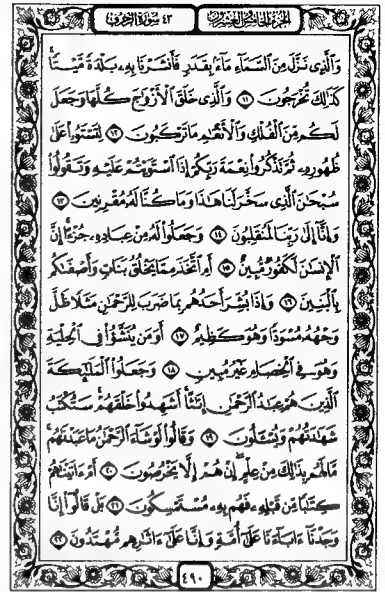 الجزء الخامس والعشرون ٤٣ سورة الزخرف
وَالَّذِى نَزَّلَ مِنَ السَّمَآءِ مَآءً بِقَدَرٍ فَأَنشَرْنَا بِهِۦ بَلْدَةً مَّيْتًا
كَذَٰلِكَ تُخْرَجُونَ ١١ وَالَّذِى خَلَقَ الْأَزْوَٰجَ كُلَّهَا وَجَعَلَ
لَكُم مِّنَ الْفُلْكِ وَالْأَنْعَٰمِ مَا تَرْكَبُونَ ١٢ لِتَسْتَوُۥا عَلَىٰ
ظُهُورِهِۦ ثُمَّ تَذْكُرُوا نِعْمَةَ رَبِّكُمْ إِذَا اسْتَوَيْتُمْ عَلَيْهِ وَتَقُولُوا
سُبْحَٰنَ الَّذِى سَخَّرَ لَنَا هَٰذَا وَمَا كُنَّا لَهُۥ مُقْرِنِينَ ١٣
وَإِنَّآ إِلَىٰ رَبِّنَا لَمُنقَلِبُونَ ١٤ وَجَعَلُوا لَهُۥ مِنْ عِبَادِهِۦ جُزْءًا إِنَّ
الْإِنسَٰنَ لَكَفُورٌ مُّبِينٌ ١٥ أَمِ اتَّخَذَ مِمَّا يَخْلُقُ بَنَاتٍ وَأَصْفَىٰكُم
بِالْبَنِينَ ١٦ وَإِذَا بُشِّرَ أَحَدُهُم بِمَا ضَرَبَ لِلرَّحْمَٰنِ مَثَلًا ظَلَّ
وَجْهُهُۥ مُسْوَدًّا وَهُوَ كَظِيمٌ ١٧ أَوَمَن يُنَشَّؤُا فِى الْحِلْيَةِ
وَهُوَ فِى الْخِصَامِ غَيْرُ مُبِينٍ ١٨ وَجَعَلُوا الْمَلَٰٓئِكَةَ
الَّذِينَ هُمْ عِبَٰدُ الرَّحْمَٰنِ إِنَٰثًا أَشَهِدُوا خَلْقَهُمْ سَتُكْتَبُ
شَهَٰدَتُهُمْ وَيُسْـَٔلُونَ ١٩ وَقَالُوا لَوْ شَآءَ الرَّحْمَٰنُ مَا عَبَدْنَٰهُم
مَّا لَهُم بِذَٰلِكَ مِنْ عِلْمٍ إِنْ هُمْ إِلَّا يَخْرُصُونَ ٢٠ أَمْ ءَاتَيْنَٰهُمْ
كِتَٰبًا مِّن قَبْلِهِۦ فَهُم بِهِۦ مُسْتَمْسِكُونَ ٢١ بَلْ قَالُوٓا إِنَّا
وَجَدْنَآ ءَابَآءَنَا عَلَىٰٓ أُمَّةٍ وَإِنَّا عَلَىٰٓ ءَاثَٰرِهِم مُّهْتَدُونَ ٢٢
٤٩٠